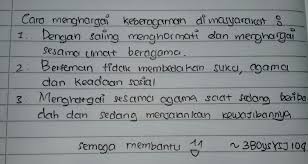 Cara menghargai keberagaman di masyarakat S
1. Dengan saling menghormati dan menghargai
sesama umat beragama.
2. Berteman tidak membedakan suku, agama
dan keadaan sosial
3 Menghargai sesama agama saat sedang beriba
dah dan sedang menjalankan kewajibannya
semoga membantu